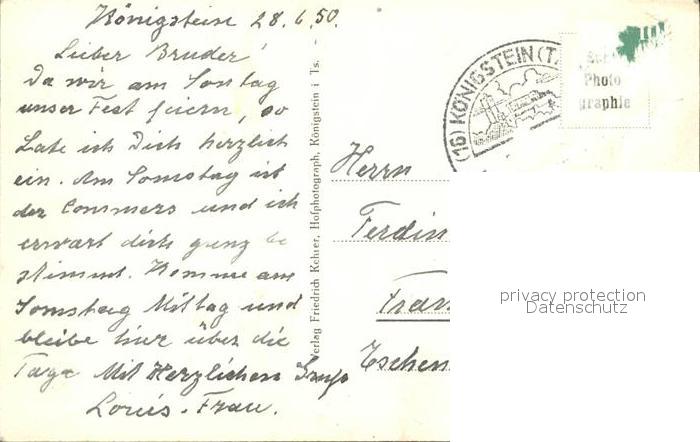 Königstein 28.6.50.
Lieber Bruder!
Da wir am Sontag
unser Fest feiern, so
Late ich Dich herzlich
ein. Am Somstag ist
der Commers und ich
erwart dich ganz be
stimmt. Komme am
Somstag Mittag und
bleibe hier über die
Tage Mit Herzlichem Gruß
Louis. Frau.
Verlag Friedrich Kehrer, Hofphotograph, Königstein i Ts.
(16) KÖNIGSTEIN (T
Photo
graphie
Herrn
Ferdin
Fran
Eschen
privacy protection
Datenschutz